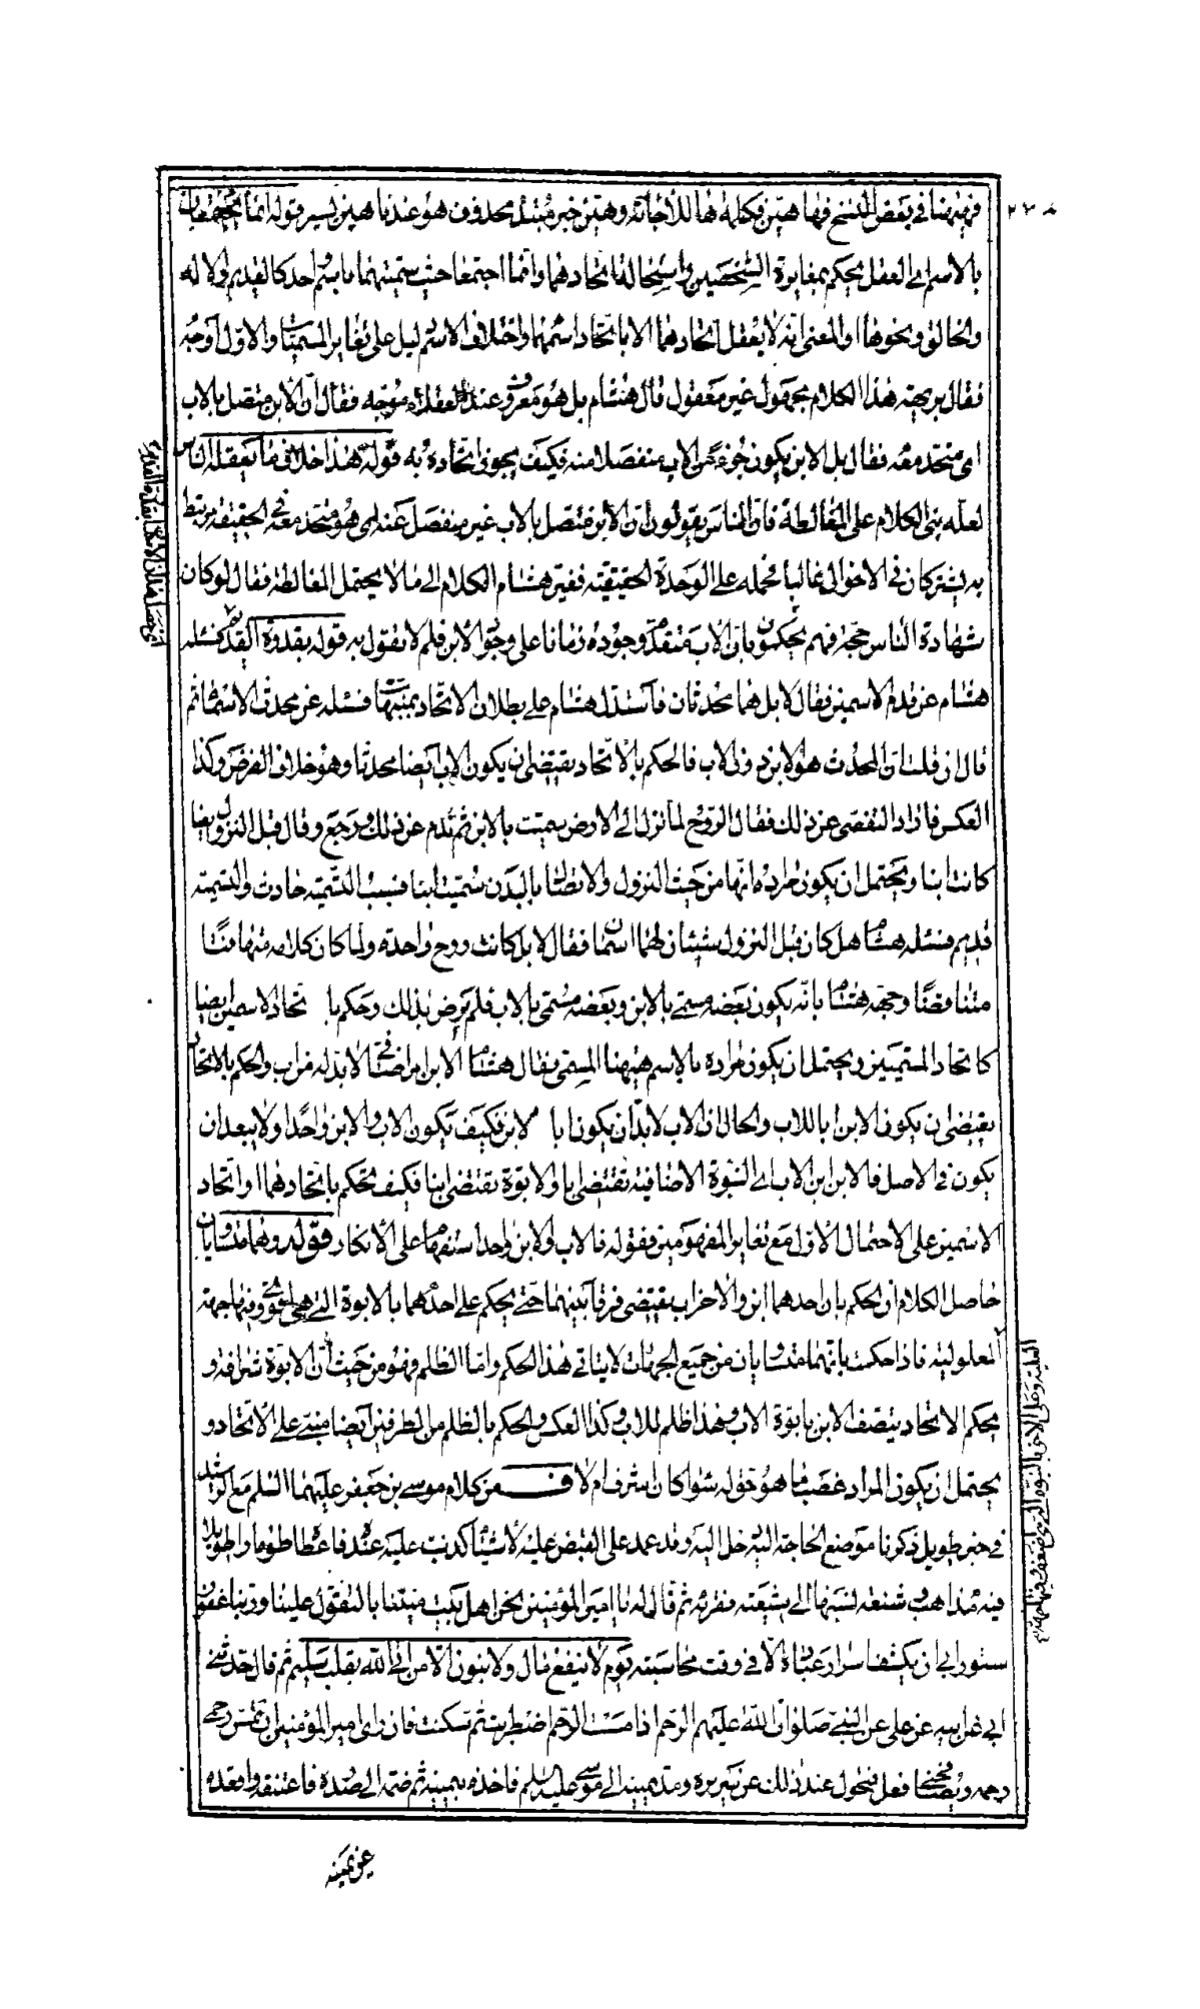 فهيهنا في بعض النسخ فها هين فكلمة ها للاجابة وهين خبر مبتدأ محذوف هو عندنا هين يسير قوله انما يجتمعان
بالاسم اي العقل يحكم بمغايرة الشخصين واستحالة اتحادهما وانما اجتمعا حيث سميتهما باسم احد كالقديم والاله
والخالق ونحوها او المعنى انه لا يعقل اتحادهما الا باتحاد اسمهما واختلاف الاسم دليل على تغاير المسميات والاول اوجه
فقال بريهه هذا الكلام مجهول غير معقول قال هشام بل هو معروف عند العقلاء موجه فقال ان الابن متصل بالاب
اي متحد معه فقال بل الابن يكون جزء من الاب منفصلا منه فكيف يجوز اتحاده به قوله هذا خلاف ما يعقله الناس
لعله بنى الكلام على المغالطة فان الناس يقولون ان الابن متصل بالاب غير منفصل عنه اي هو متحد معه في الحقيقة مرتبط
به يشتركان في الاحوال غالبا فحمله على الوحدة الحقيقية فغير هشام الكلام الى ما لا يحتمل المغالطة فقال لو كان
شهادة الناس حجة فهم يحكمون بان الاب متقدم وجوده زمانا على وجود الابن فلم لا تقول به قوله بقدرة القديم فسئله
هشام عن قدم الاسمين فقال لا بل هما محدثان فاستدل هشام على بطلان الاتحاد بمغايرتها فسئله عن محدث الاسماء ثم
قال ان قلت ان المحدث هو الابن دون الاب فالحكم بالاتحاد يقتضي ان يكون الاب ايضا محدثا وهو خلاف الفرض وكذا
العكس فاراد التفصي عن ذلك فقال الروح لما نزل الى الارض سميت بالابن ثم ندم عن ذلك ورجع وقال قبل النزول ايضا
كانت ابنا ويحتمل ان يكون مراده انها من حيث النزول والاتصال بالبدن سميت ابنا فسبب التسمية حادث والتسمية
قديم فسئله هشام هل كان قبل النزول شيئان لهما اسمان فقال لا بل كانت روح واحدة ولما كان كلامه متهافتا
متناقضا وجهه هشام بانه يكون بعضه مسمى بالابن وبعضه مسمى بالاب فلم يرض بذلك وحكم باتحاد الاسمين ايضا
كاتحاد المسميين ويحتمل ان يكون مراده بالاسم هيهنا المسمى فقال هشام الابن امر اضافي لا بد له من اب والحكم بالاتحاد
يقتضي ان يكون الابن ابا للاب والحال ان الاب لا بد ان يكون ابا لابن فكيف يكون الاب والابن واحدا ولا يبعد ان
يكون في الاصل فالابن ابن الاب اي النبوة الاضافية تقتضي ابا والابوة تقتضي ابنا فكيف تحكم باتحادهما او اتحاد
الاسمين على الاحتمال الاول مع تغاير المفهومين فقوله فالاب والابن واحد استفهام على الانكار قوله وهما متساويان
حاصل الكلام ان الحكم بان احدهما ابن والاخر اب يقتضي فرقا بينهما حتى يحكم على احدهما بالابوة التي هي اقوى وفيها جهة
المعلولية فاذا حكمت بانهما متساويان من جميع الجهات لا يتاتى هذا الحكم واما الظلم فهو من حيث ان الابوة شرافة و
بحكم الاتحاد يتصف الابن بابوة الاب وهذا ظلم للاب وكذا العكس والحكم بالظلم من الطرفين ايضا مبني على الاتحاد و
يحتمل ان يكون المراد غصب ما هو حق له سواء كان اشرف ام لا ف من كلام موسى بن جعفر عليهما السلم مع الرشيد
في خبر طويل ذكرنا موضع الحاجة اليه دخل اليه وقد عمد على القبض عليه لاشياء كذبت عليه عنده فاعطاه طومارا طويلا
فيه مذاهب شنعة نسبها الى شيعته فقرأه ثم قال له يا امير المؤمنين نحن اهل بيت منينا بالتقول علينا وربنا غفور
ستور ابى ان يكشف اسرار عباده الا في وقت محاسبته يوم لا ينفع مال ولا بنون الا من اتى الله بقلب سليم ثم قال حدثني
ابي عن ابيه عن علي عن النبي صلوات الله عليهم الرحم اذا مست الرحم اضطربت ثم سكنت فان راى امير المؤمنين ان تمس رحمي
رحمه ويصافحني فعل فتحول عند ذلك عن سريره ومد يمينه الى موسى عليه السلم فاخذه بيمينه ثم ضمه الى صدره فاعتنقه واقعده
عن يمينه